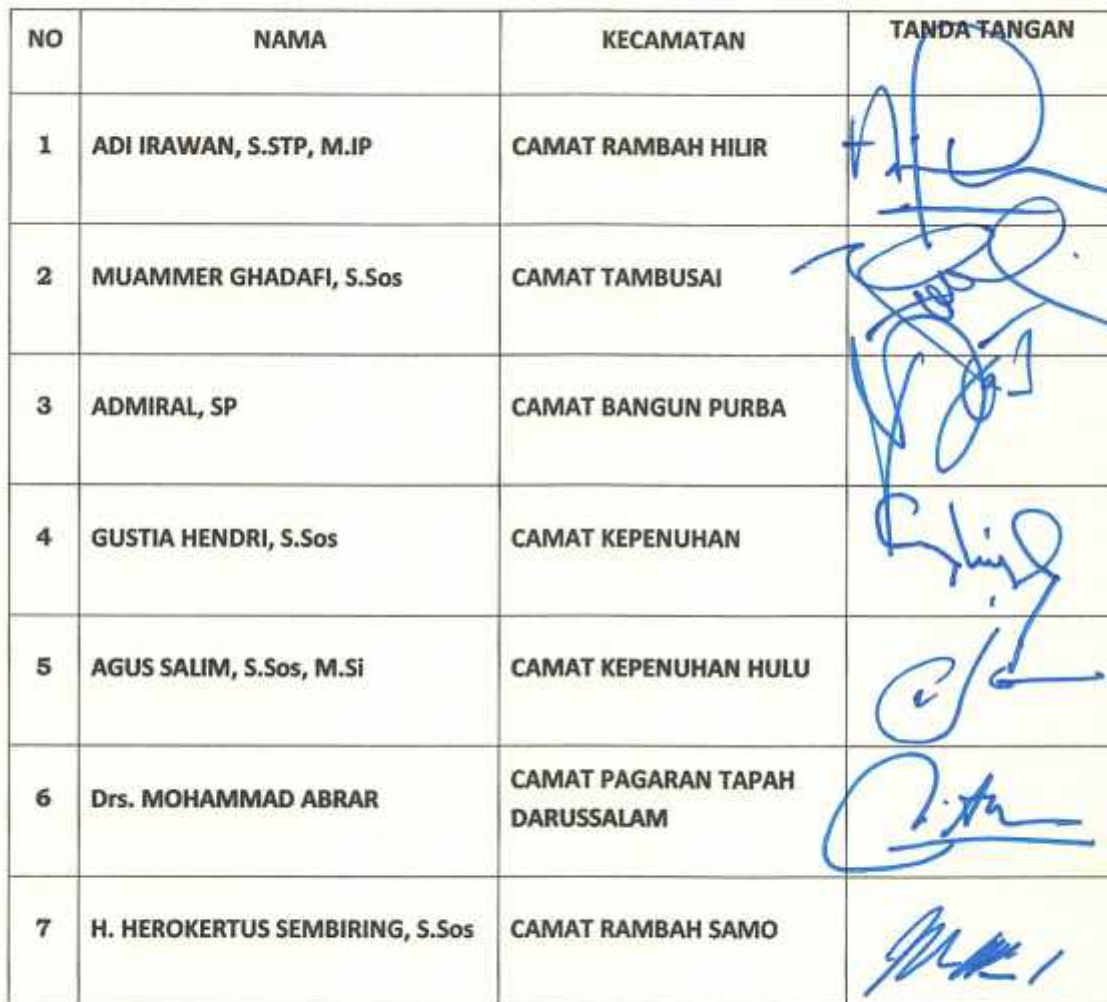 NO NAMA KECAMATAN TANDA TANGAN
1 ADI IRAWAN, S.STP, M.IP CAMAT RAMBAH HILIR
2 MUAMMER GHADAFI, S.Sos CAMAT TAMBUSAI
3 ADMIRAL, SP CAMAT BANGUN PURBA
4 GUSTIA HENDRI, S.Sos CAMAT KEPENUHAN
5 AGUS SALIM, S.Sos, M.Si CAMAT KEPENUHAN HULU
6 Drs. MOHAMMAD ABRAR CAMAT PAGARAN TAPAH
DARUSSALAM
7 H. HEROKERTUS SEMBIRING, S.Sos CAMAT RAMBAH SAMO